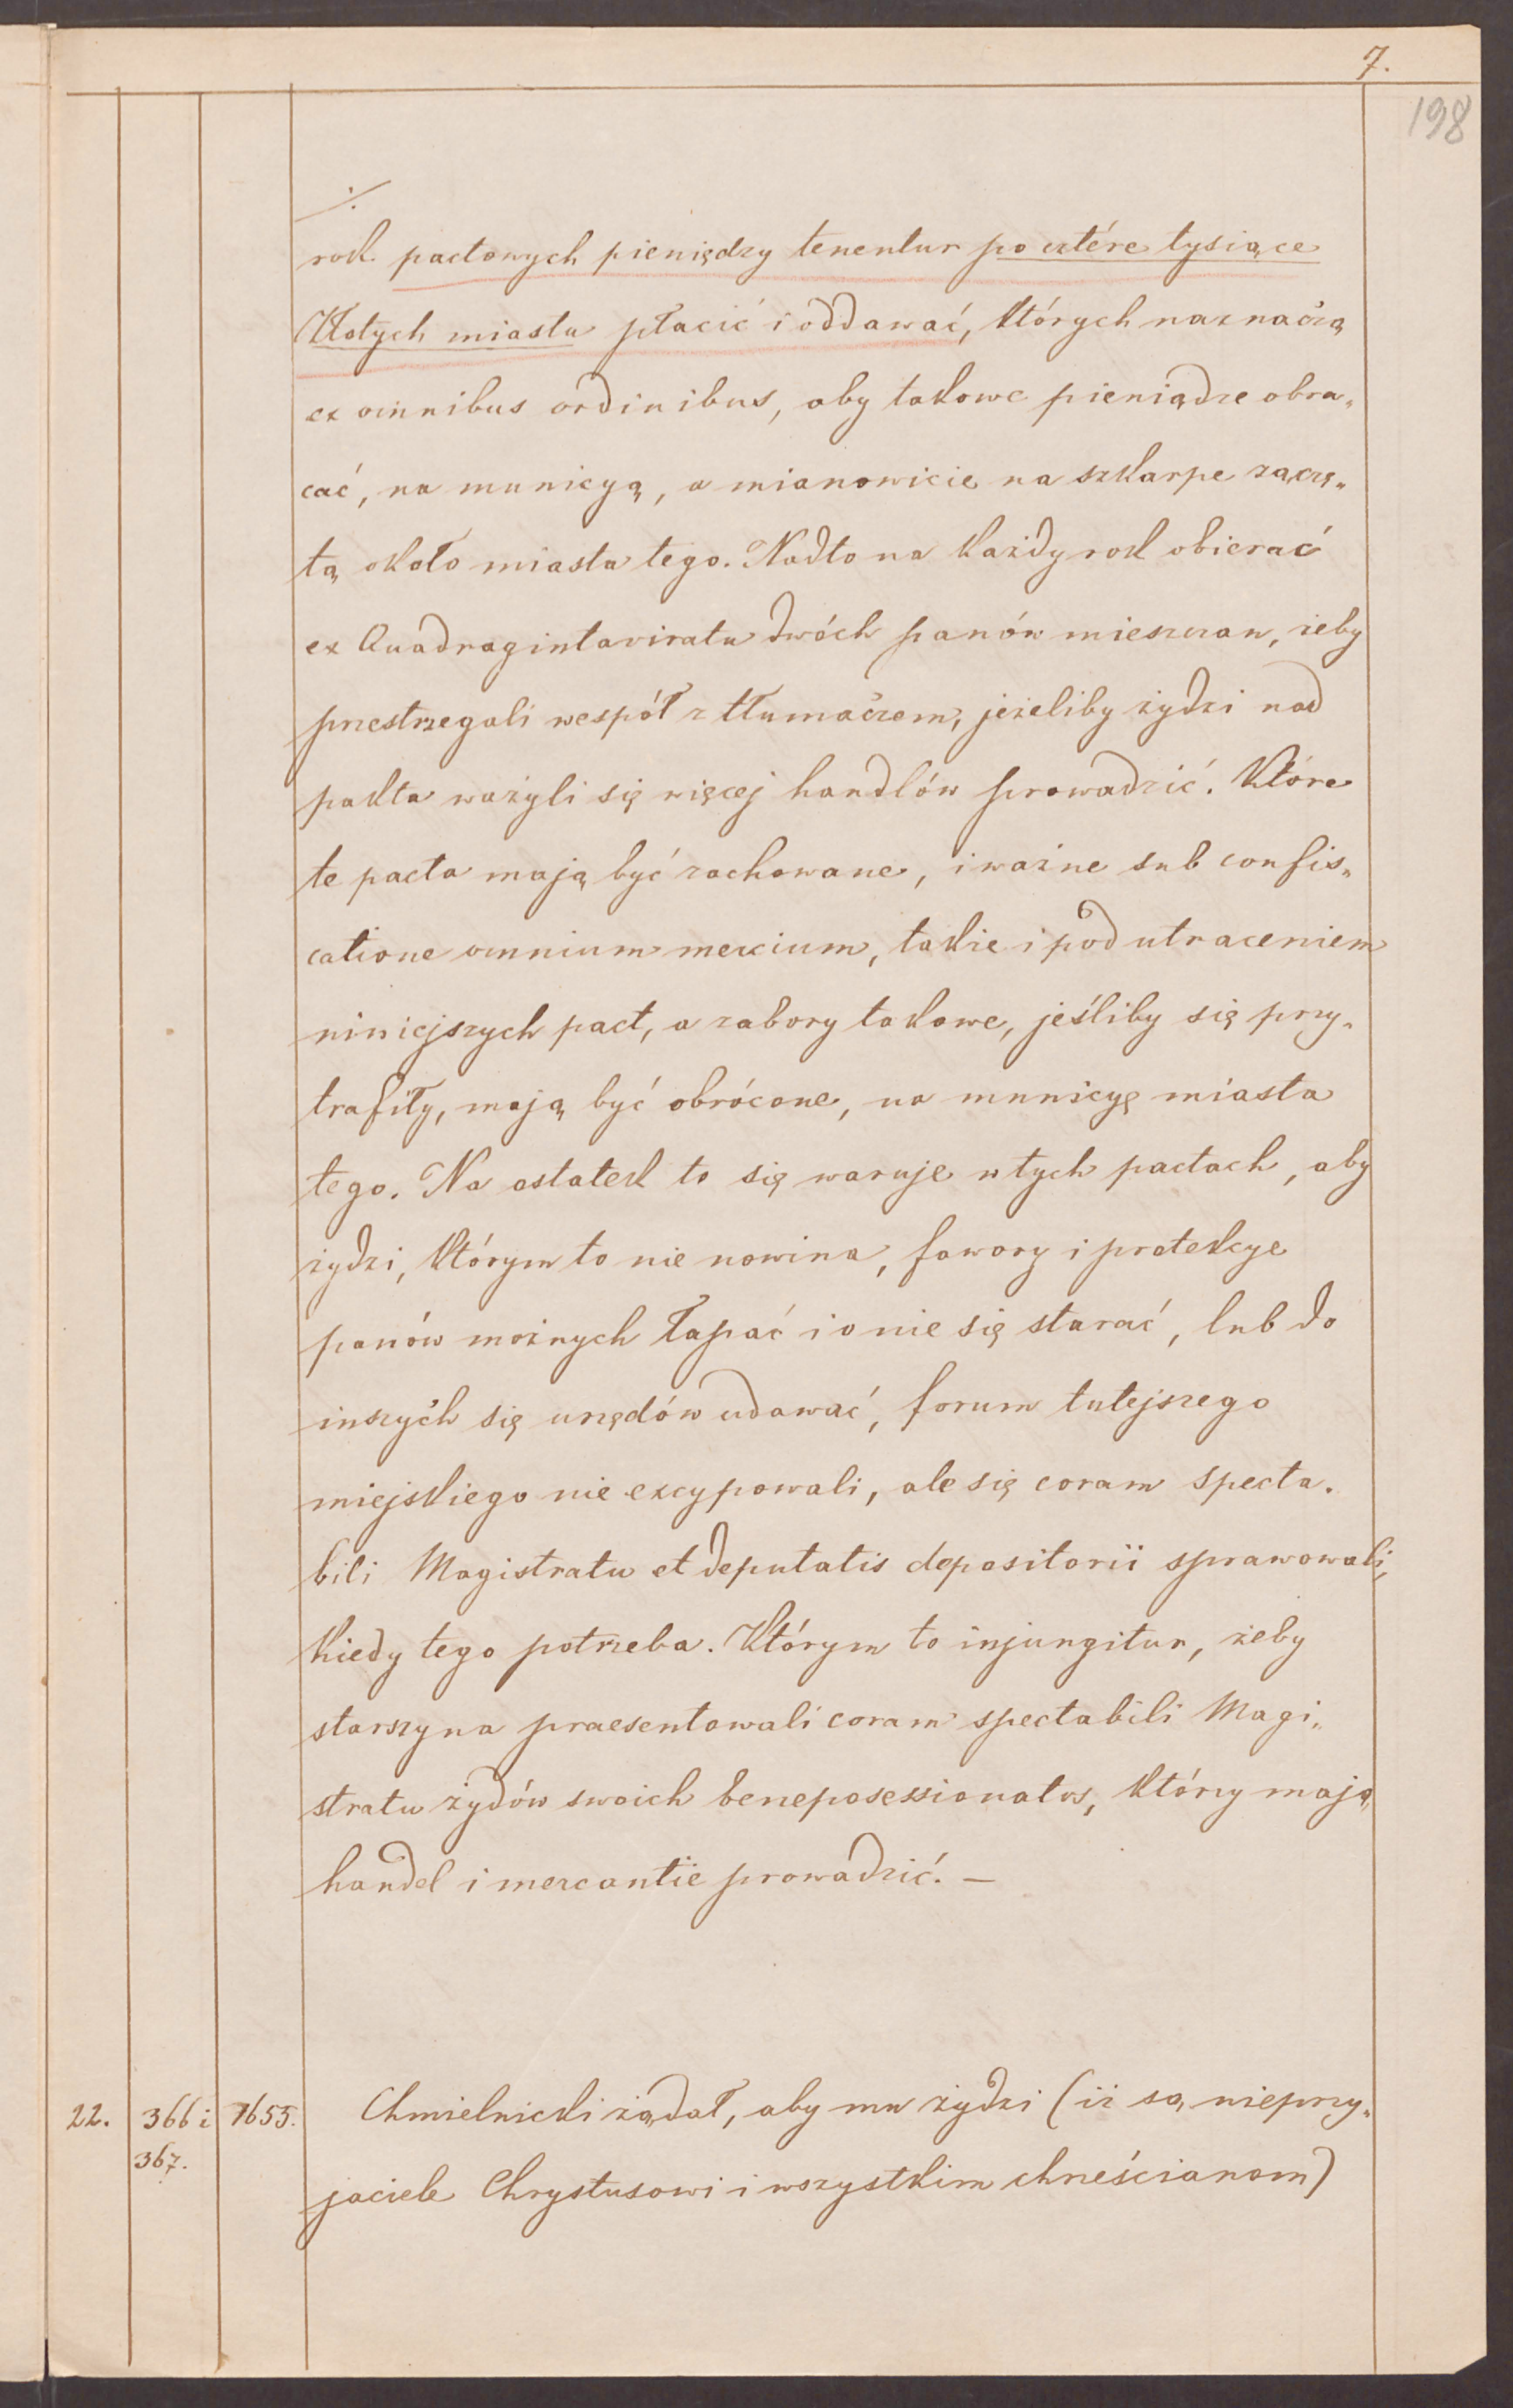 7.
198
./.
rok pactowych pieniędzy tenentur po cztére tysiące
Złotych miastu płacić i oddawać, których naznaczą
ex omnibus ordinibus, aby takowe pieniądze obra„
cać, na municyą, a mianowicie na szkarpe zaczę„
tą około miasta tego. Nadto na każdy rok obierać
ex Quadragintaviratu dwóch panów mieszczan, żeby
przestrzegali wespół z tłumaczem, jeżeliby żydzi nad
pakta ważyli się więcej handlów prowadzić. Które
te pacta mają być zachowane, i ważne sub confis„
catione omnium mercium, takie i pod utraceniem
niniejszych pact, a zabory takowe, jeśliby się przy„
trafiły, mają być obrócone, na municyę miasta
tego. Na ostatek to się waruje w tych pactach, aby
żydzi, którym to nie nowina, fawory i protekcye
panów możnych łapać i o nie się starać, lub do
inszych się urzędów udawać, forum tutejszego
miejskiego nie excypowali, ale się coram specta.
bili Magistratu et deputatis depositorii sprawowali,
kiedy tego potrzeba. Którym to injungitur, żeby
starszyna praesentowali coram spectabili Magi„
stratu żydów swoich benepossessionatos, którzy mają
handel i mercantie prowadzić. —
22. 366 i 1655. Chmielnicki żądał, aby mu żydzi (iż są nieprzy„
367. jaciele Chrystusowi i wszystkim chrześcianom)